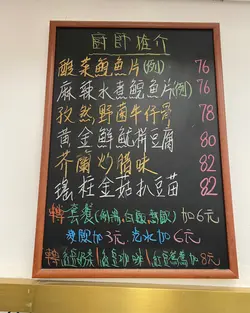 廚師推介
酸菜鯇魚片(例) 76
麻辣水煮鯇魚片(例) 76
孜然野菌牛仔骨 78
黃金鮮魷拼豆腐 80
芥蘭炒臘味 82
瑤柱金菇扒豆苗 82
轉套餐(例湯,白飯,熱飲)加6元
凍飲加3元,汽水加6元
轉紅豆奶茶/紅豆冰/加8元